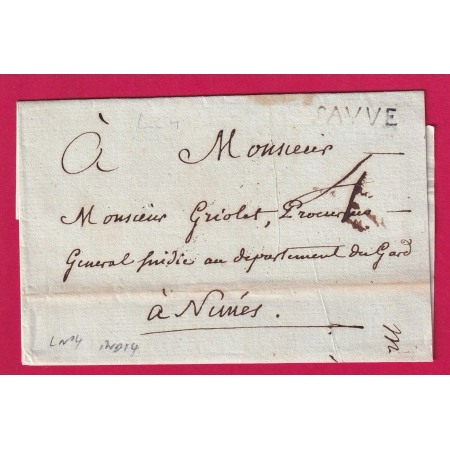 SAUVE
À Monsieur
4
Monsieur Griolet, Procureur
General sindic au departement du Gard
à Nimés.
L N°4 IND14